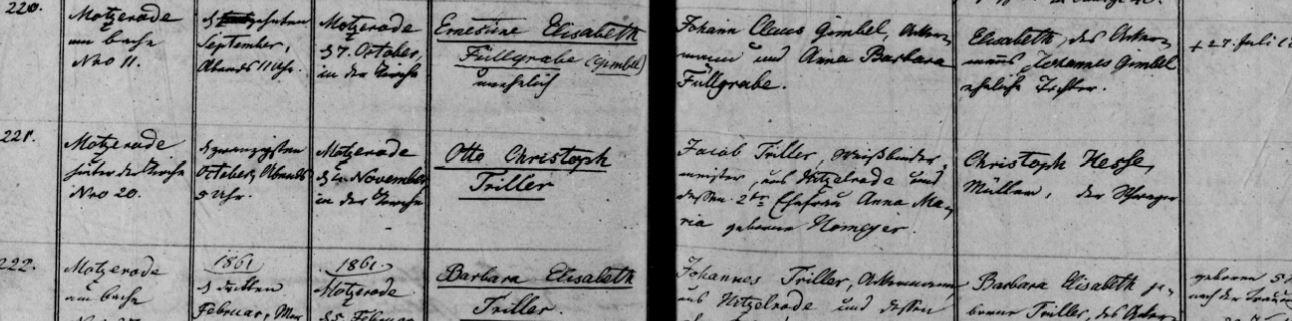 220.
Motzerade
am bache
Nro 11.
September,
Abends 11 Uhr.
Motzerade
d 7. October,
in der Kirche
Ernestine Elisabeth
Füllgrabe (Gimbel)
unehelich
Johann Claus Gimbel, Acker-
mann und Anna Barbara
Füllgrabe.
Elisabeth, des Acker-
manns Johannes Gimbel
eheliche Tochter.
+ 27. Juli
221.
Motzerade
hinter der Kirche
Nro 20.
d zwanzigsten
October, Abends
5 Uhr.
Motzerade
November
in der Kirche
Otto Christoph
Triller
Jacob Triller, Weißbinder-
meister, aus Hitzelrode und
dessen 2te Ehefrau Anna Ma-
ria geborene Homeyer.
Christoph Hesse,
Müller, der Schwager
222.
Motzerade
am bache
1861
d dritten
Februar, Mor
1861.
Motzerade
d 5. Februar
Barbara Elisabeth
Triller.
Johannes Triller, Ackermann,
aus Hitzelrode und dessen
Barbara Elisabeth ge-
borene Triller, des Acker-
geboren
nach der Trauung